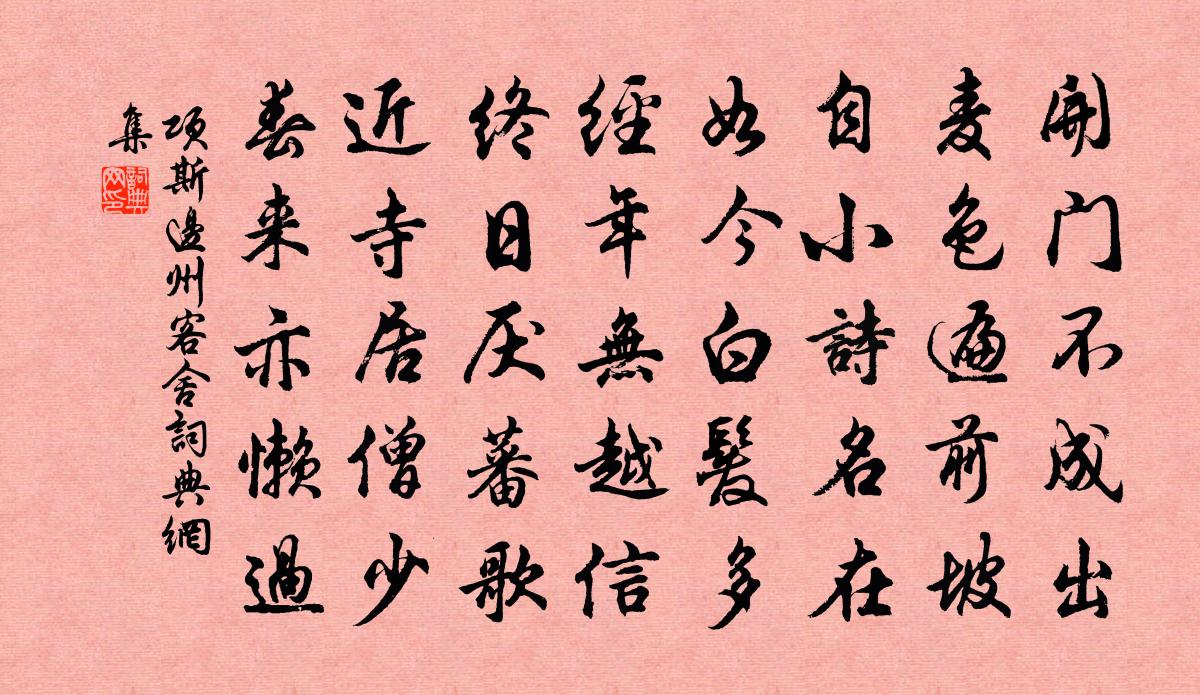 開门不成出
麦色遍前坡
自小詩名在
如今白髮多
經年無越信
终日厌蕃歌
近寺居僧少
春来亦懒過
項斯邊州客舍詞典網
集
詞典网印